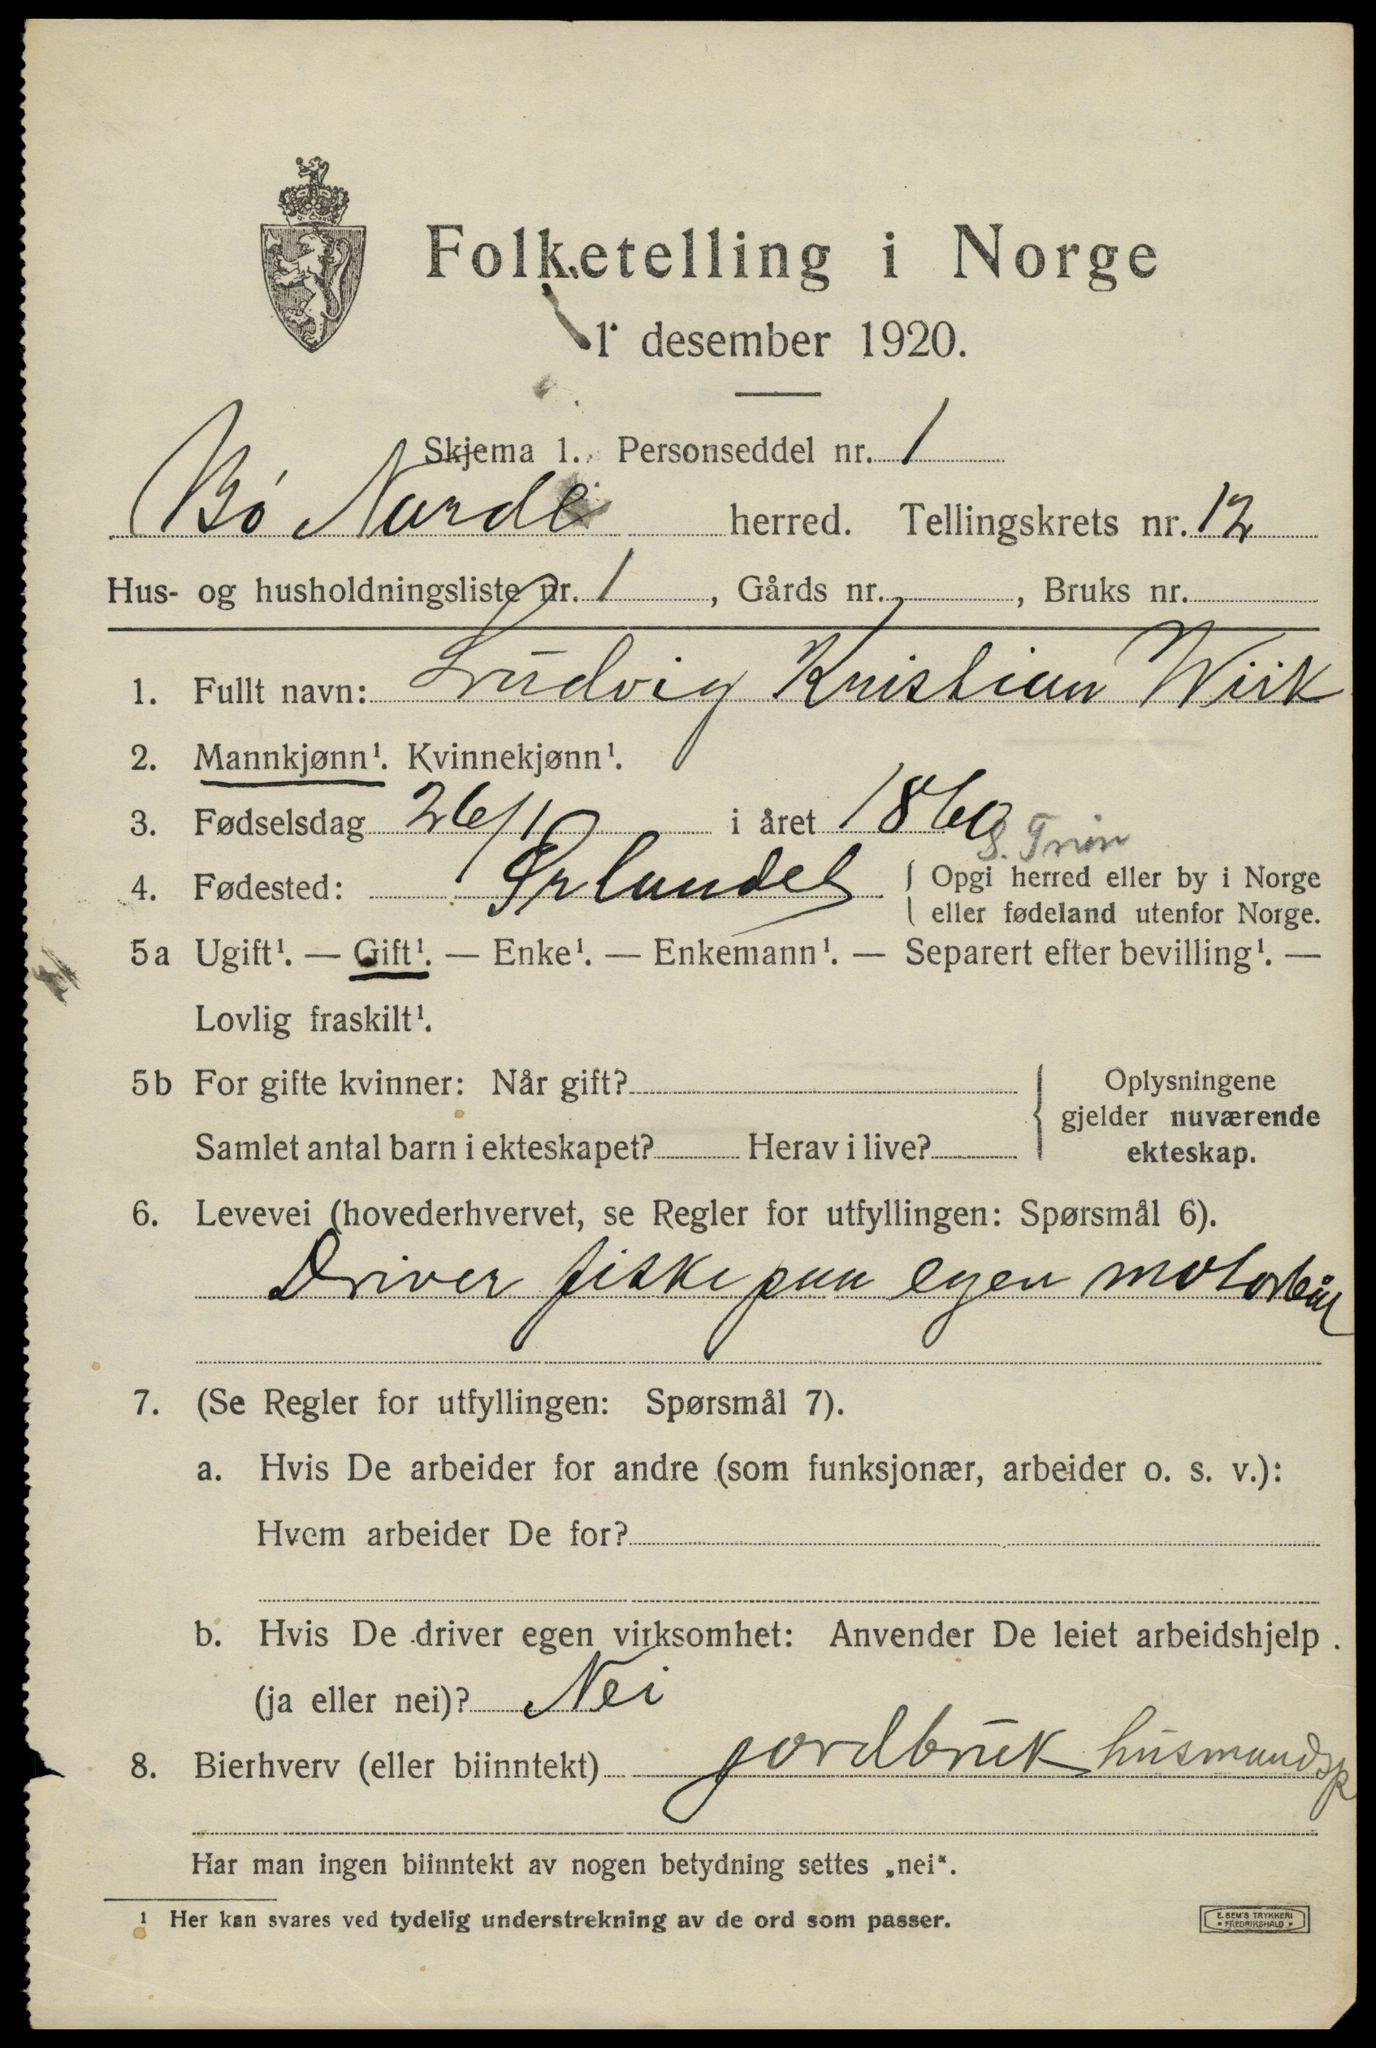 Folketelling i Norge
1 desember 1920.
Skjema 1. Personseddel nr. 1
Bø Nordl herred. Tellingskrets nr. 12
Hus- og husholdningsliste nr. 1, Gårds nr. , Bruks nr.
1. Fullt navn: Ludvig Kristian Wiik
2. Mannkjønn¹. Kvinnekjønn¹.
3. Fødselsdag 26/1 i året 1860
S. Trøn
4. Fødested: Ørlandet { Opgi herred eller by i Norge
eller fødeland utenfor Norge.
5a Ugift¹. — Gift¹. — Enke¹. — Enkemann¹. — Separert efter bevilling¹. —
Lovlig fraskilt¹.
5b For gifte kvinner: Når gift?
Samlet antal barn i ekteskapet? Herav i live?
Oplysningene
gjelder nuværende
ekteskap.
6. Levevei (hovederhvervet, se Regler for utfyllingen: Spørsmål 6).
Driver fiske paa egen motorbåt
7. (Se Regler for utfyllingen: Spørsmål 7).
a. Hvis De arbeider for andre (som funksjonær, arbeider o. s. v.):
Hvem arbeider De for?
b. Hvis De driver egen virksomhet: Anvender De leiet arbeidshjelp
(ja eller nei)? Nei
8. Bierhverv (eller biinntekt) jordbruk husmandspl
Har man ingen biinntekt av nogen betydning settes „nei“.
¹ Her kan svares ved tydelig understrekning av de ord som passer.
E. SEM'S TRYKKERI
• FREDRIKSHALD •